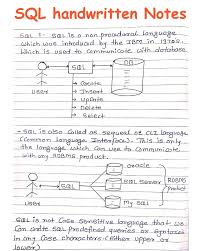 SQL handwritten Notes
SQL :- SQL is a non procedural language
which was introduced by the IBM in 1970s.
Which is used to communicate with database.
DB
SQL
User
→ Create
→ Insert
→ Update
→ Delete
→ Select
- SQL is also called as sequel or CLI language
(Common language Interface). This is only
the language which can use to communicate
with any RDBMS product.
Oracle
SQL
SQL Server
RDBMS
Product
User
My SQL
SQL is not Case sensitive language that we
Can write SQL predefined queries or syntaxes
in any Case characters (either Upper or
lower)